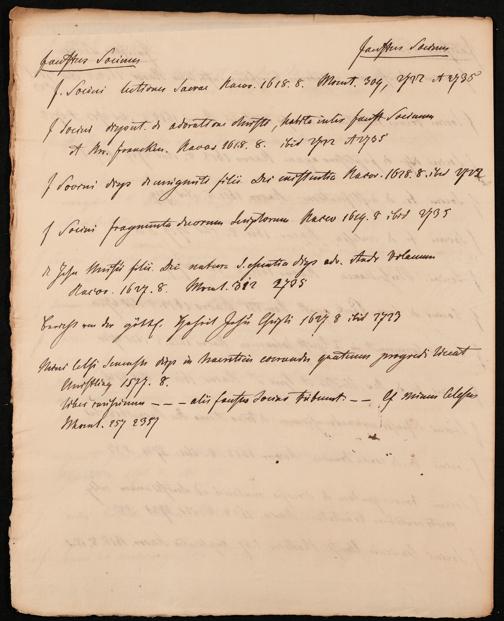 faustus Socinus faustus Socinus
f. Socini lectiones Sacrae Racov. 1618. 8. Mont. 304, 2722 et 2735
f Socini disput. de adoratione Christi, habita inter faust. Socinum
et Chr. francken. Racov 1618. 8. ibid 2722 et 2735
f Socini disp de unigeniti filii Dei existentia Racov. 1618. 8. ibid 2722
f Socini fragmenta duorum Scriptorum Racov 1619. 8 ibid 2735
de Jesu Christi filii Dei natura s. essentia disp adv. Andr Volanum
Racov. 1627. 8. Mont. 312 2735
Beweis von der göttl. Hoheit Jesu Christi 1627 8 ibid 2723
Mini Celsi Senensis disp in haereticis coercendis quatenus progredi liceat
Christling 1577. 8.
Liber rarissimus — — — alii fausto Socino tribuunt — — Cf Minus Celsus
Mont. 257 2357